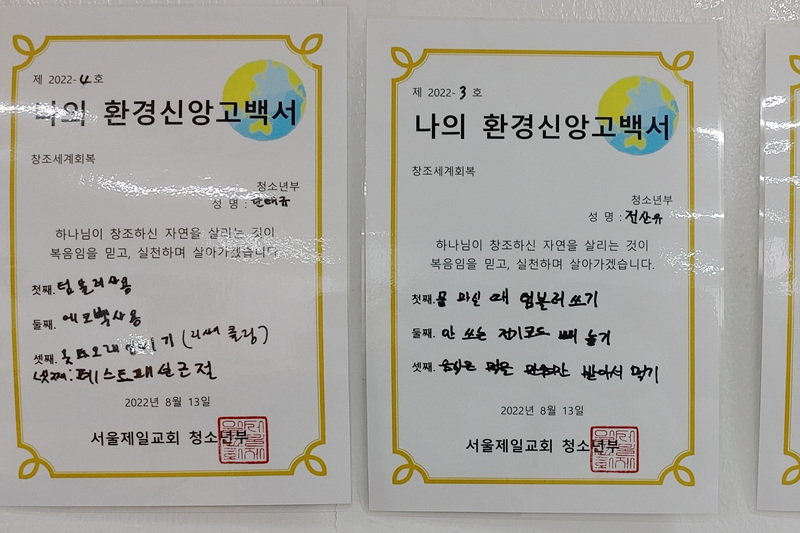 제 2022-4호
나의 환경신앙고백서
창조세계회복
청소년부
성 명 :
하나님이 창조하신 자연을 살리는 것이
복음임을 믿고, 실천하며 살아가겠습니다.
첫째. 텀블러사용
둘째. 에코백사용
셋째. 옷 (리싸이클링)
넷째: 패스트패션근절
2022년 8월 13일
서울제일교회 청소년부
제 2022-3호
나의 환경신앙고백서
창조세계회복
청소년부
성 명 : 전산유
하나님이 창조하신 자연을 살리는 것이
복음임을 믿고, 실천하며 살아가겠습니다.
첫째. 물 마실 때 텀블러쓰기
둘째. 안 쓰는 전기코드 빼 놓기
셋째. 음식은 먹을 만큼만 받아서 먹기
2022년 8월 13일
서울제일교회 청소년부